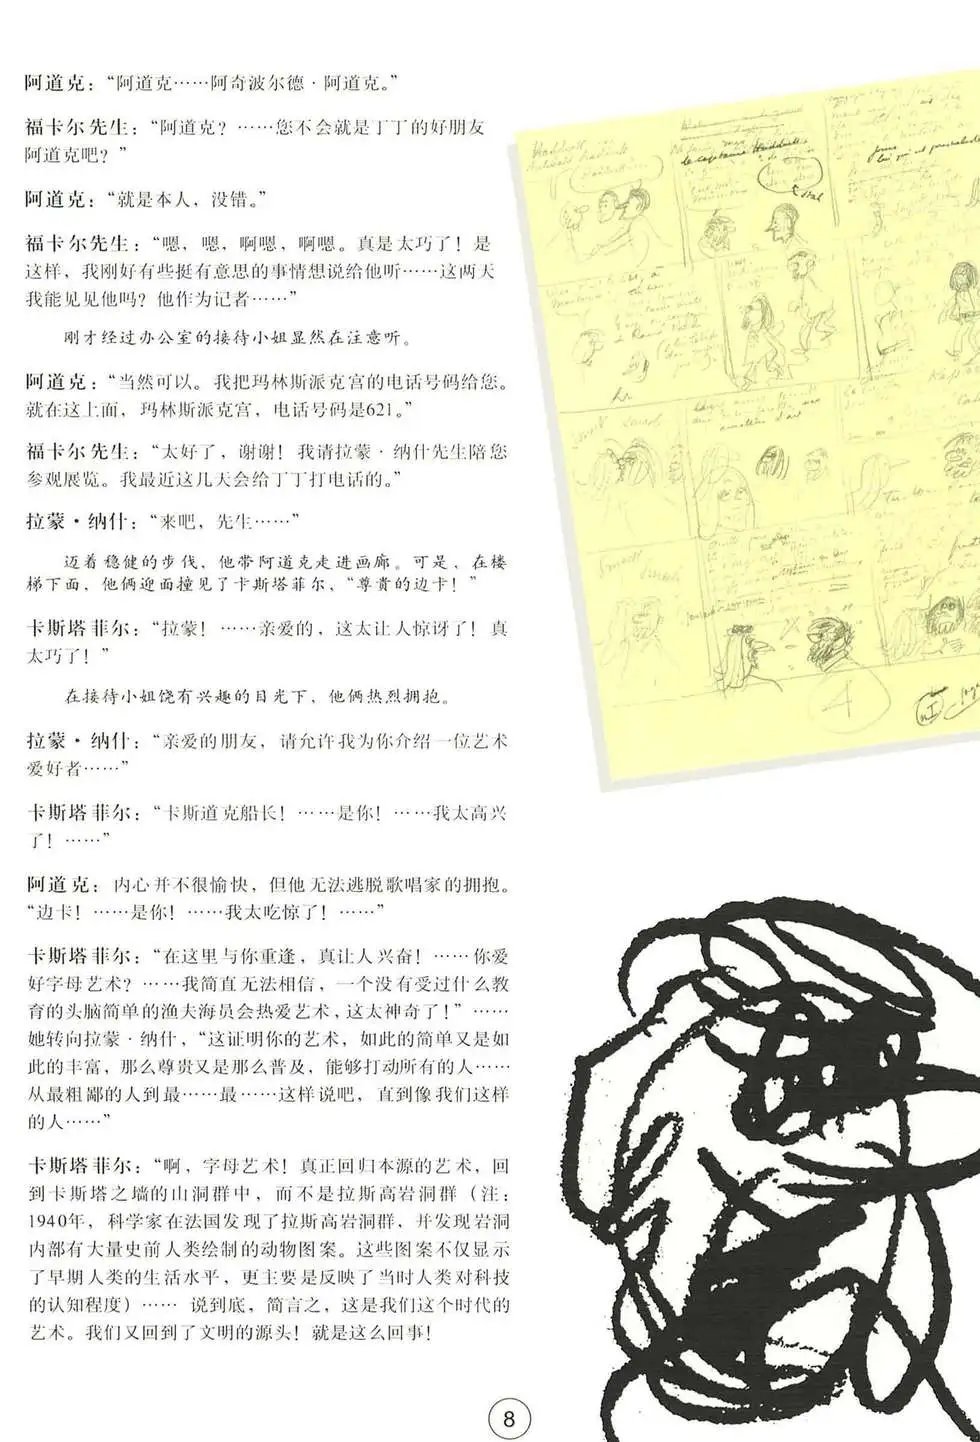 阿道克：“阿道克……阿奇波尔德·阿道克。”
福卡尔先生：“阿道克？……您不会就是丁丁的好朋友
阿道克吧？”
阿道克：“就是本人，没错。”
福卡尔先生：“嗯，嗯，啊嗯，啊嗯。真是太巧了！是
这样，我刚好有些挺有意思的事情想说给他听……这两天
我能见见他吗？他作为记者……”
刚才经过办公室的接待小姐显然在注意听。
阿道克：“当然可以。我把玛林斯派克宫的电话号码给您。
就在这上面，玛林斯派克宫，电话号码是621。”
福卡尔先生：“太好了，谢谢！我请拉蒙·纳什先生陪您
参观展览。我最近这几天会给丁丁打电话的。”
拉蒙·纳什：“来吧，先生……”
迈着稳健的步伐，他带阿道克走进画廊。可是，在楼
梯下面，他俩迎面撞见了卡斯塔菲尔，“尊贵的边卡！”
卡斯塔菲尔：“拉蒙！……亲爱的，这太让人惊讶了！真
太巧了！”
在接待小姐饶有兴趣的目光下，他俩热烈拥抱。
拉蒙·纳什：“亲爱的朋友，请允许我为你介绍一位艺术
爱好者……”
卡斯塔菲尔：“卡斯道克船长！……是你！……我太高兴
了！……”
阿道克：内心并不很愉快，但他无法逃脱歌唱家的拥抱。
“边卡！……是你！……我太吃惊了！……”
卡斯塔菲尔：“在这里与你重逢，真让人兴奋！……你爱
好字母艺术？……我简直无法相信，一个没有受过什么教
育的头脑简单的渔夫海员会热爱艺术，这太神奇了！”……
她转向拉蒙·纳什，“这证明你的艺术，如此的简单又是如
此的丰富，那么尊贵又是那么普及，能够打动所有的人……
从最粗鄙的人到最……最……这样说吧，直到像我们这样
的人……”
卡斯塔菲尔：“啊，字母艺术！真正回归本源的艺术，回
到卡斯塔之墙的山洞群中，而不是拉斯高岩洞群（注：
1940年，科学家在法国发现了拉斯高岩洞群，并发现岩洞
内部有大量史前人类绘制的动物图案。这些图案不仅显示
了早期人类的生活水平，更主要是反映了当时人类对科技
的认知程度）…… 说到底，简言之，这是我们这个时代的
艺术。我们又回到了文明的源头！就是这么回事！
8